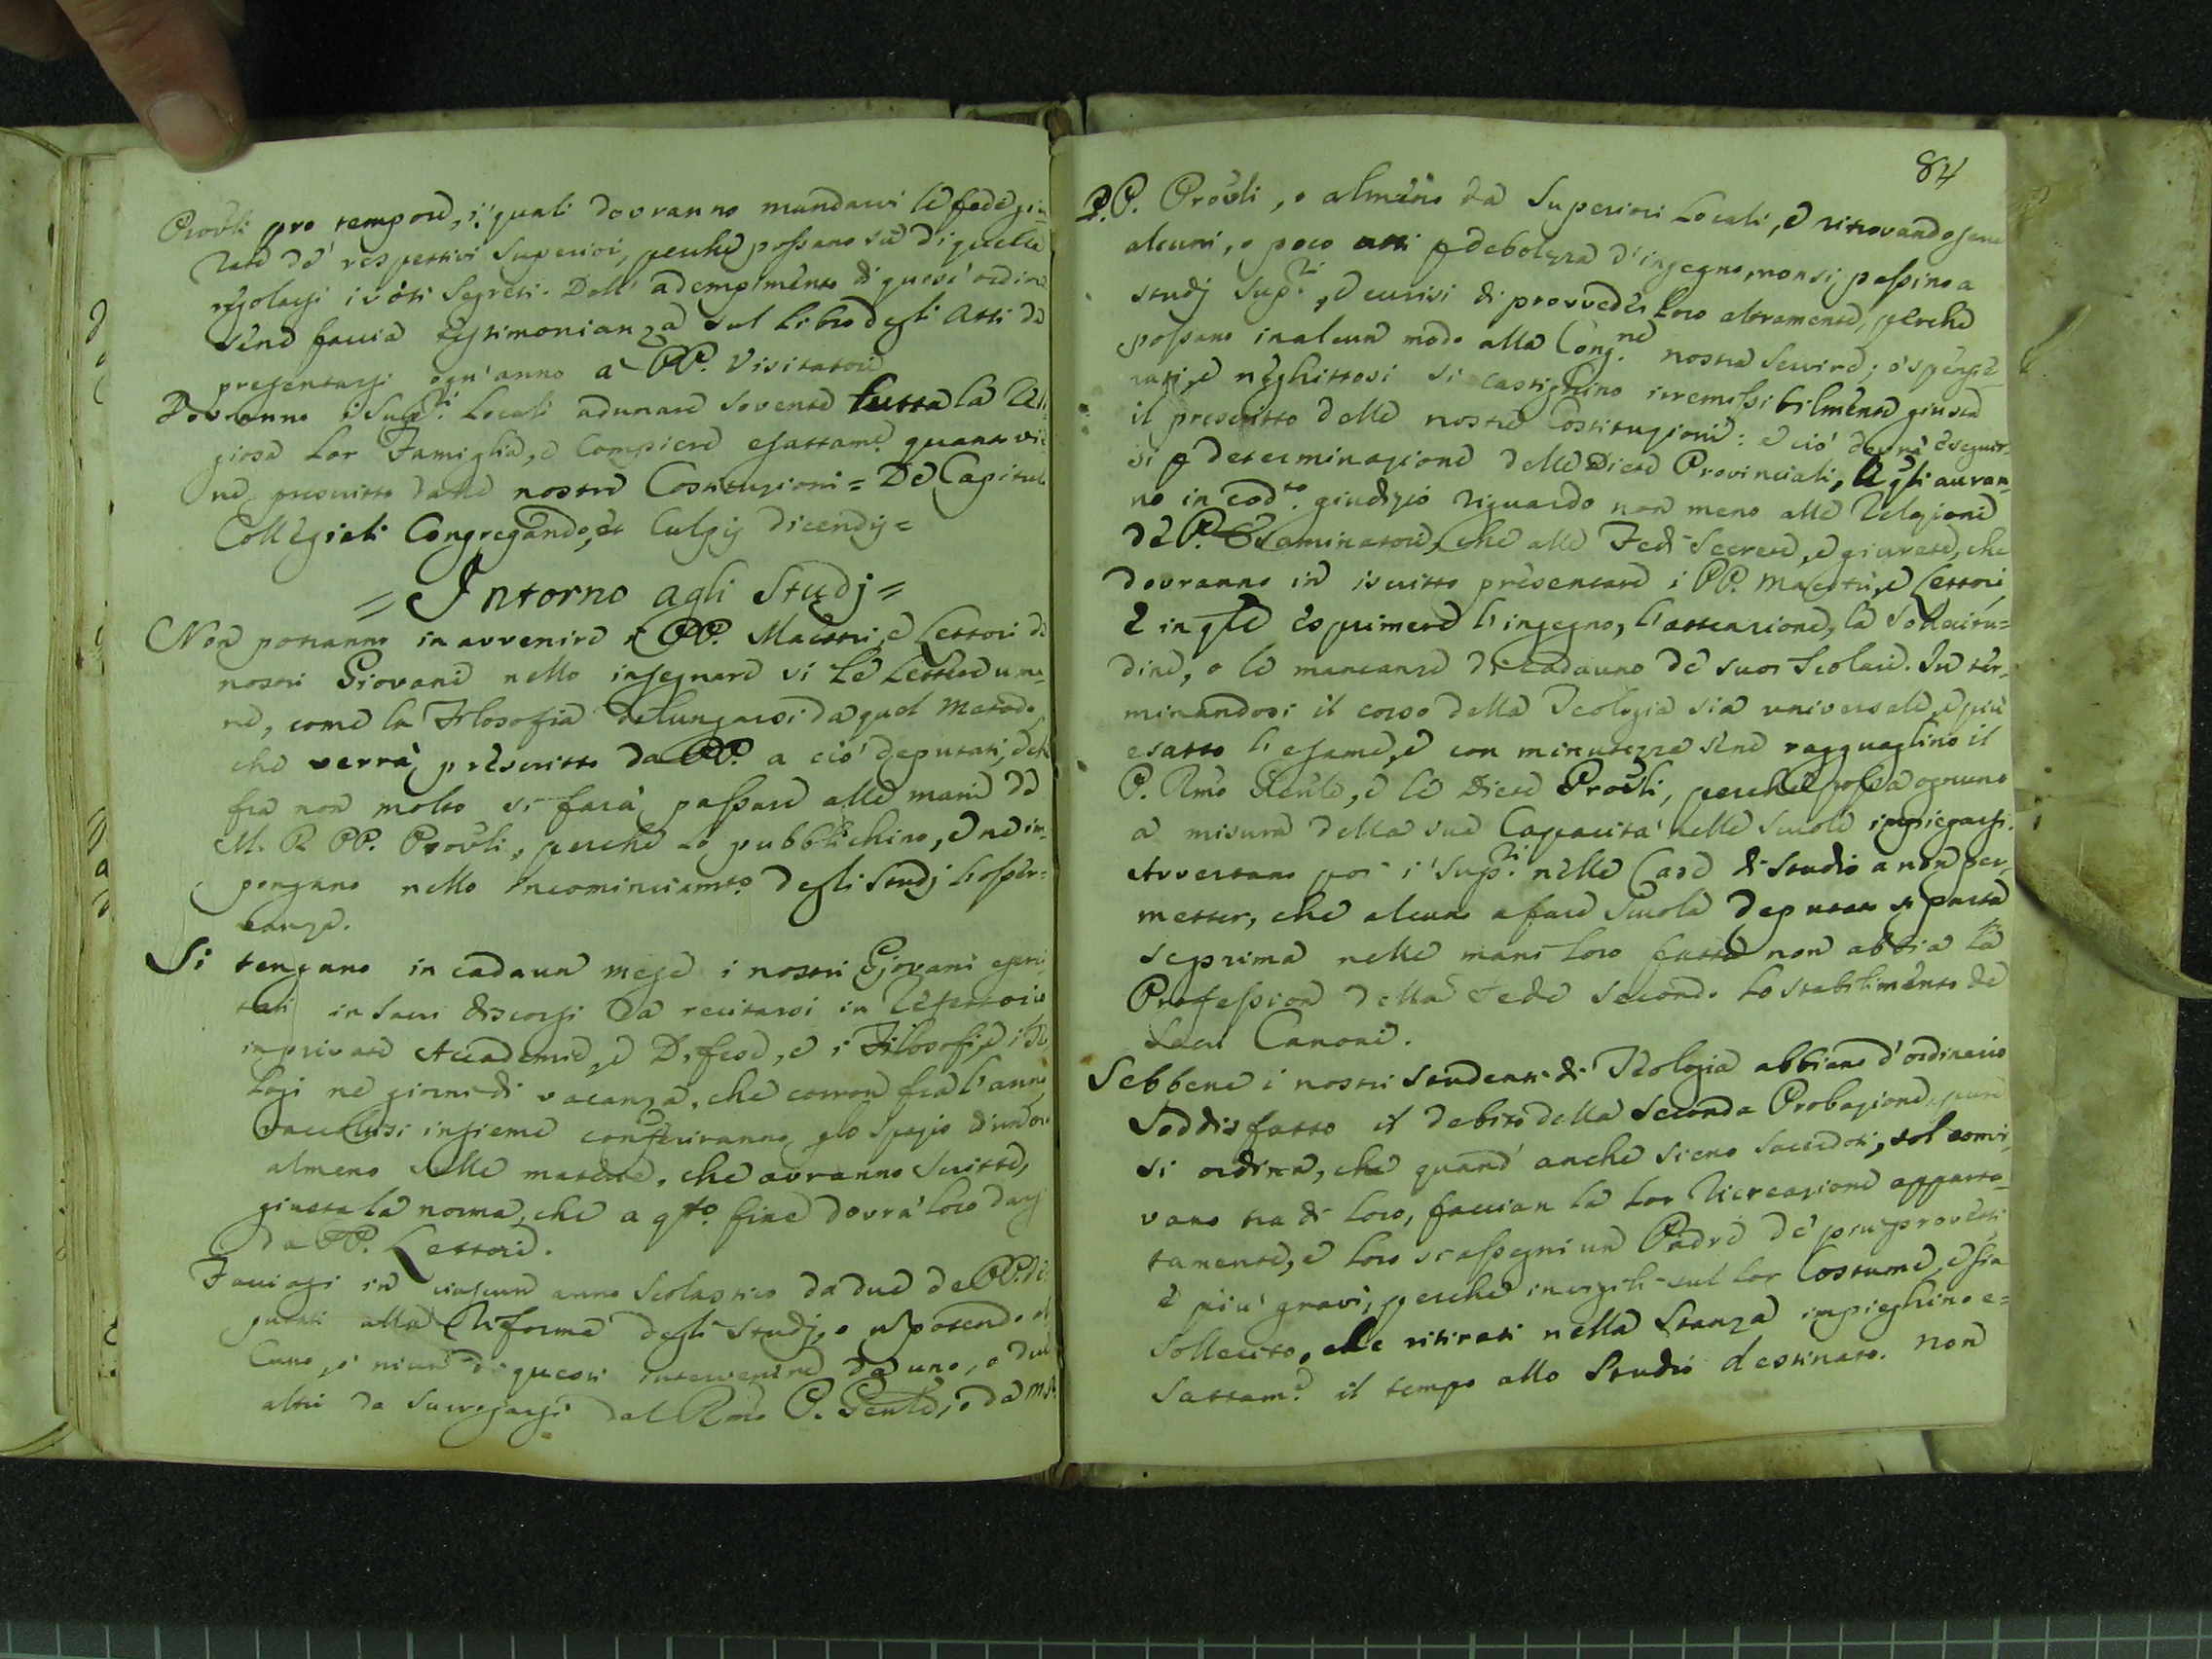 Provli pro tempore, i quali dovranno mandarvi le fedi giu-
rate de' respettivi Superiori, perchè possano su di quelle
regolarsi i voti segreti. Dell' adempimento di quest' ordine
sene faccia testimonianza sul Libro degli Atti da
presentarsi ogn' anno a' PP. Visitatori
Dovranno i Supri. Locali adunare sovente tutta la Reli
giosa lor Famiglia, e compiere esattame. quanto vie
ne prescritto dalle nostre Costituzioni = De Capitul
Collegiali Congregando, et Culpis dicendis =
= Intorno agli Studj =
Non potranno in avvenire i PP. Maestri, e Lettori de
nostri Giovani nello insegnare sì le Lettere uma-
ne, come la Filosofia dilungarsi da quel metodo,
che verrà prescritto da PP. a ciò deputati, e che
fra non molto si farà passare alle mani de
M. R. PP. Provli, perchè lo pubblichino, e ne im-
pongano nello incominciamto. degli Studj l' osser-
vanza.
Si tengano in cadaun mese i nostri Giovani eserci
tati in sacri discorsi da recitarsi in Refettorio,
in private Accademie, e Difese, e i Filosofi, e i Teo
logi ne giorni di vacanza, che corron fra l' anno
racchiusi insieme conferiranno p lo spazio di un' ora
almeno sulle materie, che avranno scritte,
giusta la norma, che a qsto. fine dovrà loro darsi
da PP. Lettori.
Facciasi in ciascun anno Scolastico da due de PP. de
putati alla Riforma degli Studj, o n potendo al
cuno, o niun di questi intervenire da uno, o due
altri da surrogarsi dal Rmo P. Gentle, o da M.R.
84
P.P. Provli, o almeno da Superiori Locali, e ritrovandosene
alcuni, o poco atti p debolezza d' ingegno, non si passino a
studj Supri., e curisi di provveder loro altramente, perchè
possano in alcun modo alla Congne. nostra servire; o spensie-
rati, e neghittosi si castighino irremissibilmente giusta
il prescritto delle nostre Costituzioni: e ciò dovrà eseguir-
si p determinazione delle Diete Provinciali, le qli avran-
no in codto. giudizio riguardo non meno alle Relazioni
de P. Esaminatori, che alle Fedi secrete, e giurate, che
dovranno in iscritto presentare i PP. Maestri, e Lettori,
e in qlle esprimere l' ingegno, l' attenzione, la sollecitu=
dine, o le mancanze di cadauno de' suoi Scolari. In ter-
minandosi il corso della Teologia sia universale, e più
esatto l' esame, e con minutezza sene ragguaglino il
P. Rmo Genle, e le Diete Provli, perchè possa ognuno
a misura della sua Capacità nelle Scuole impiegarsi.
Avvertano poi i Supri. nelle Case di Studio a non per-
metter, che alcuno a fare Scuola deputato si parta
se prima nelle mani loro fatta non abbia la
Profession della Fede secondo lo stabilimento de
Sacri Canoni.
Sebbene i nostri studenti di Teologia abbiano d' ordinario
soddisfatto il debito della seconda Probazione, pure
si ordina, che quand' anche sieno Sacerdoti, sol convi-
vano tra di loro, faccian la lor Ricreazione apparta-
tamente, e loro si assegni un Padre de' più provetti,
e più gravi, perchè invigili sul lor Costume, e sia
sollecito, che ritirati nella Stanza impieghino e=
sattame. il tempo allo Studio destinato. Non